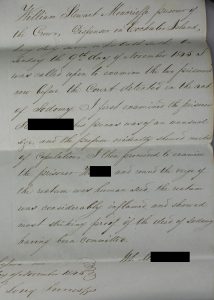 William Stewart Moncrieff, prisoner of
the Crown, Dispenser on Cockatoo Island,
Sunday the 6th day of November 1845 I
was called upon to examine the two prisoners
now before the Court detected in the act
of Sodomy I first examined the prisoner
his penis was of an unusual
size, and the prepuce evidently showed marks
of Copulation, I then proceeded to examine
the prisoner and round the verge of
the rectum was human seed, the rectum
was considerably inflamed and showed
most striking proof of the deed of Sodomy
having been committed.
of November 1845